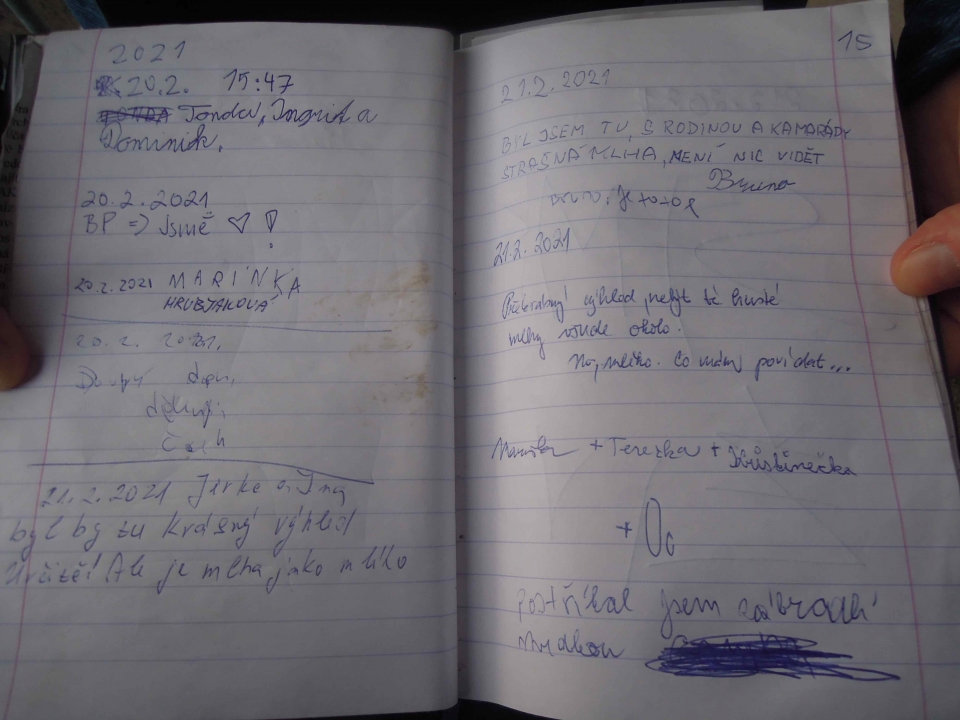 2021
20.2. 15:47
Tonda, Ingrid a
Dominik.
20.2.2021
BP => Jsme ♡ !
20.2.2021 MARINKA
HRUBJAKOVÁ
20.2. 2021.
Dobrý den,
děkuji
Čech
21.2.2021 Jirka a Ina
byl by zu krásný výhled
Určitě! Ale je mlha jako mlíko
15
21.2.2021
BYL JSEM TU, S RODINOU A KAMARÁDY
STRAŠNÁ MLHA, NENÍ NIC VIDĚT
Bruno
21.2.2021
Překrásný výhled, nebýt té husté
mlhy všude okolo.
No, mlíko. Co mám povídat...
+ Terezka + Kristínečka
+
Postříkal jsem zábradlí
mrdkou